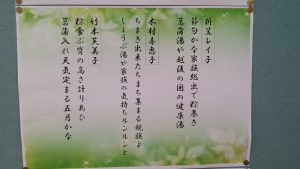 折笠レイ子
節句かな家族総出で粽巻き
菖蒲湯や越後の国の健康湯
木村喜恵子
ちまき出来たちまち集まる親族よ
しょうぶ湯や家族の気持ちルンルンと
竹本芙美子
粽食ぶ背の高さ計りあひ
菖蒲入れ天気定まる五月かな